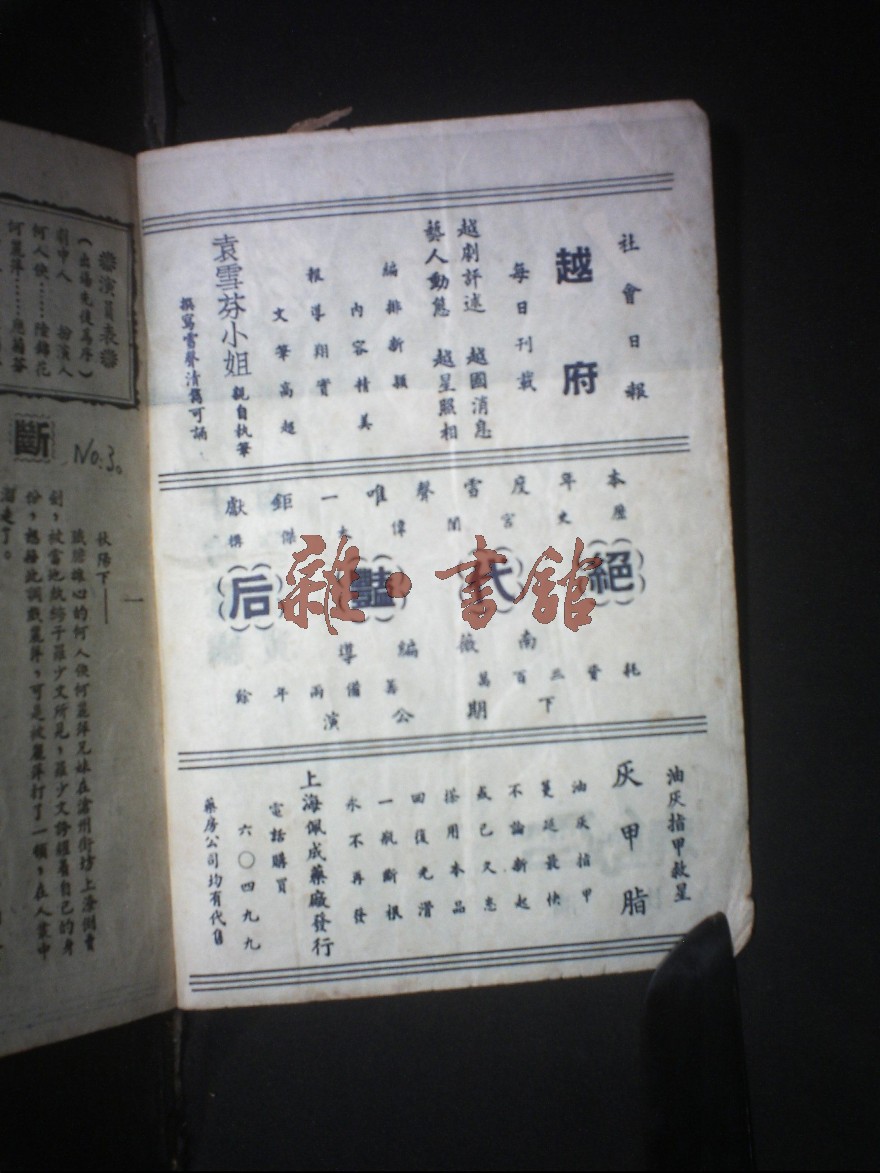 社會日報
越府
每日刊載
越劇評述 越國消息
藝人動態 越星照相
編排新穎
內容精美
報導翔實
文筆高超
袁雪芬小姐親自執筆
撰寫雪聲清雋可誦
本年度雪聲唯一鉅獻
歷史宮闈偉大傑構
絕代豔后
南薇編導
耗資三百萬籌備兩年餘
下期公演
油灰指甲救星
灰甲脂
油灰指甲
蔓延最快
不論新起
或已久患
搽用本品
回復光滑
一瓶斷根
永不再發
上海佩成藥廠發行
電話購買
六〇四九九
藥房公司均有代售
演員表
(出場先後為序)
劇中人 扮演人
何人俠……陸錦花
何麗萍……應菊芬
斷
No.3.
一
秋陽下——
誰心的何人俠何麗萍兄妹在滄州街坊上潑側賣
劍,被當地紈絝子羅少文所見,羅少文誇耀着自己的身
份,想藉此調戲麗萍,可是被麗萍打了一頓,在人叢中
溜走了。
雜·書館